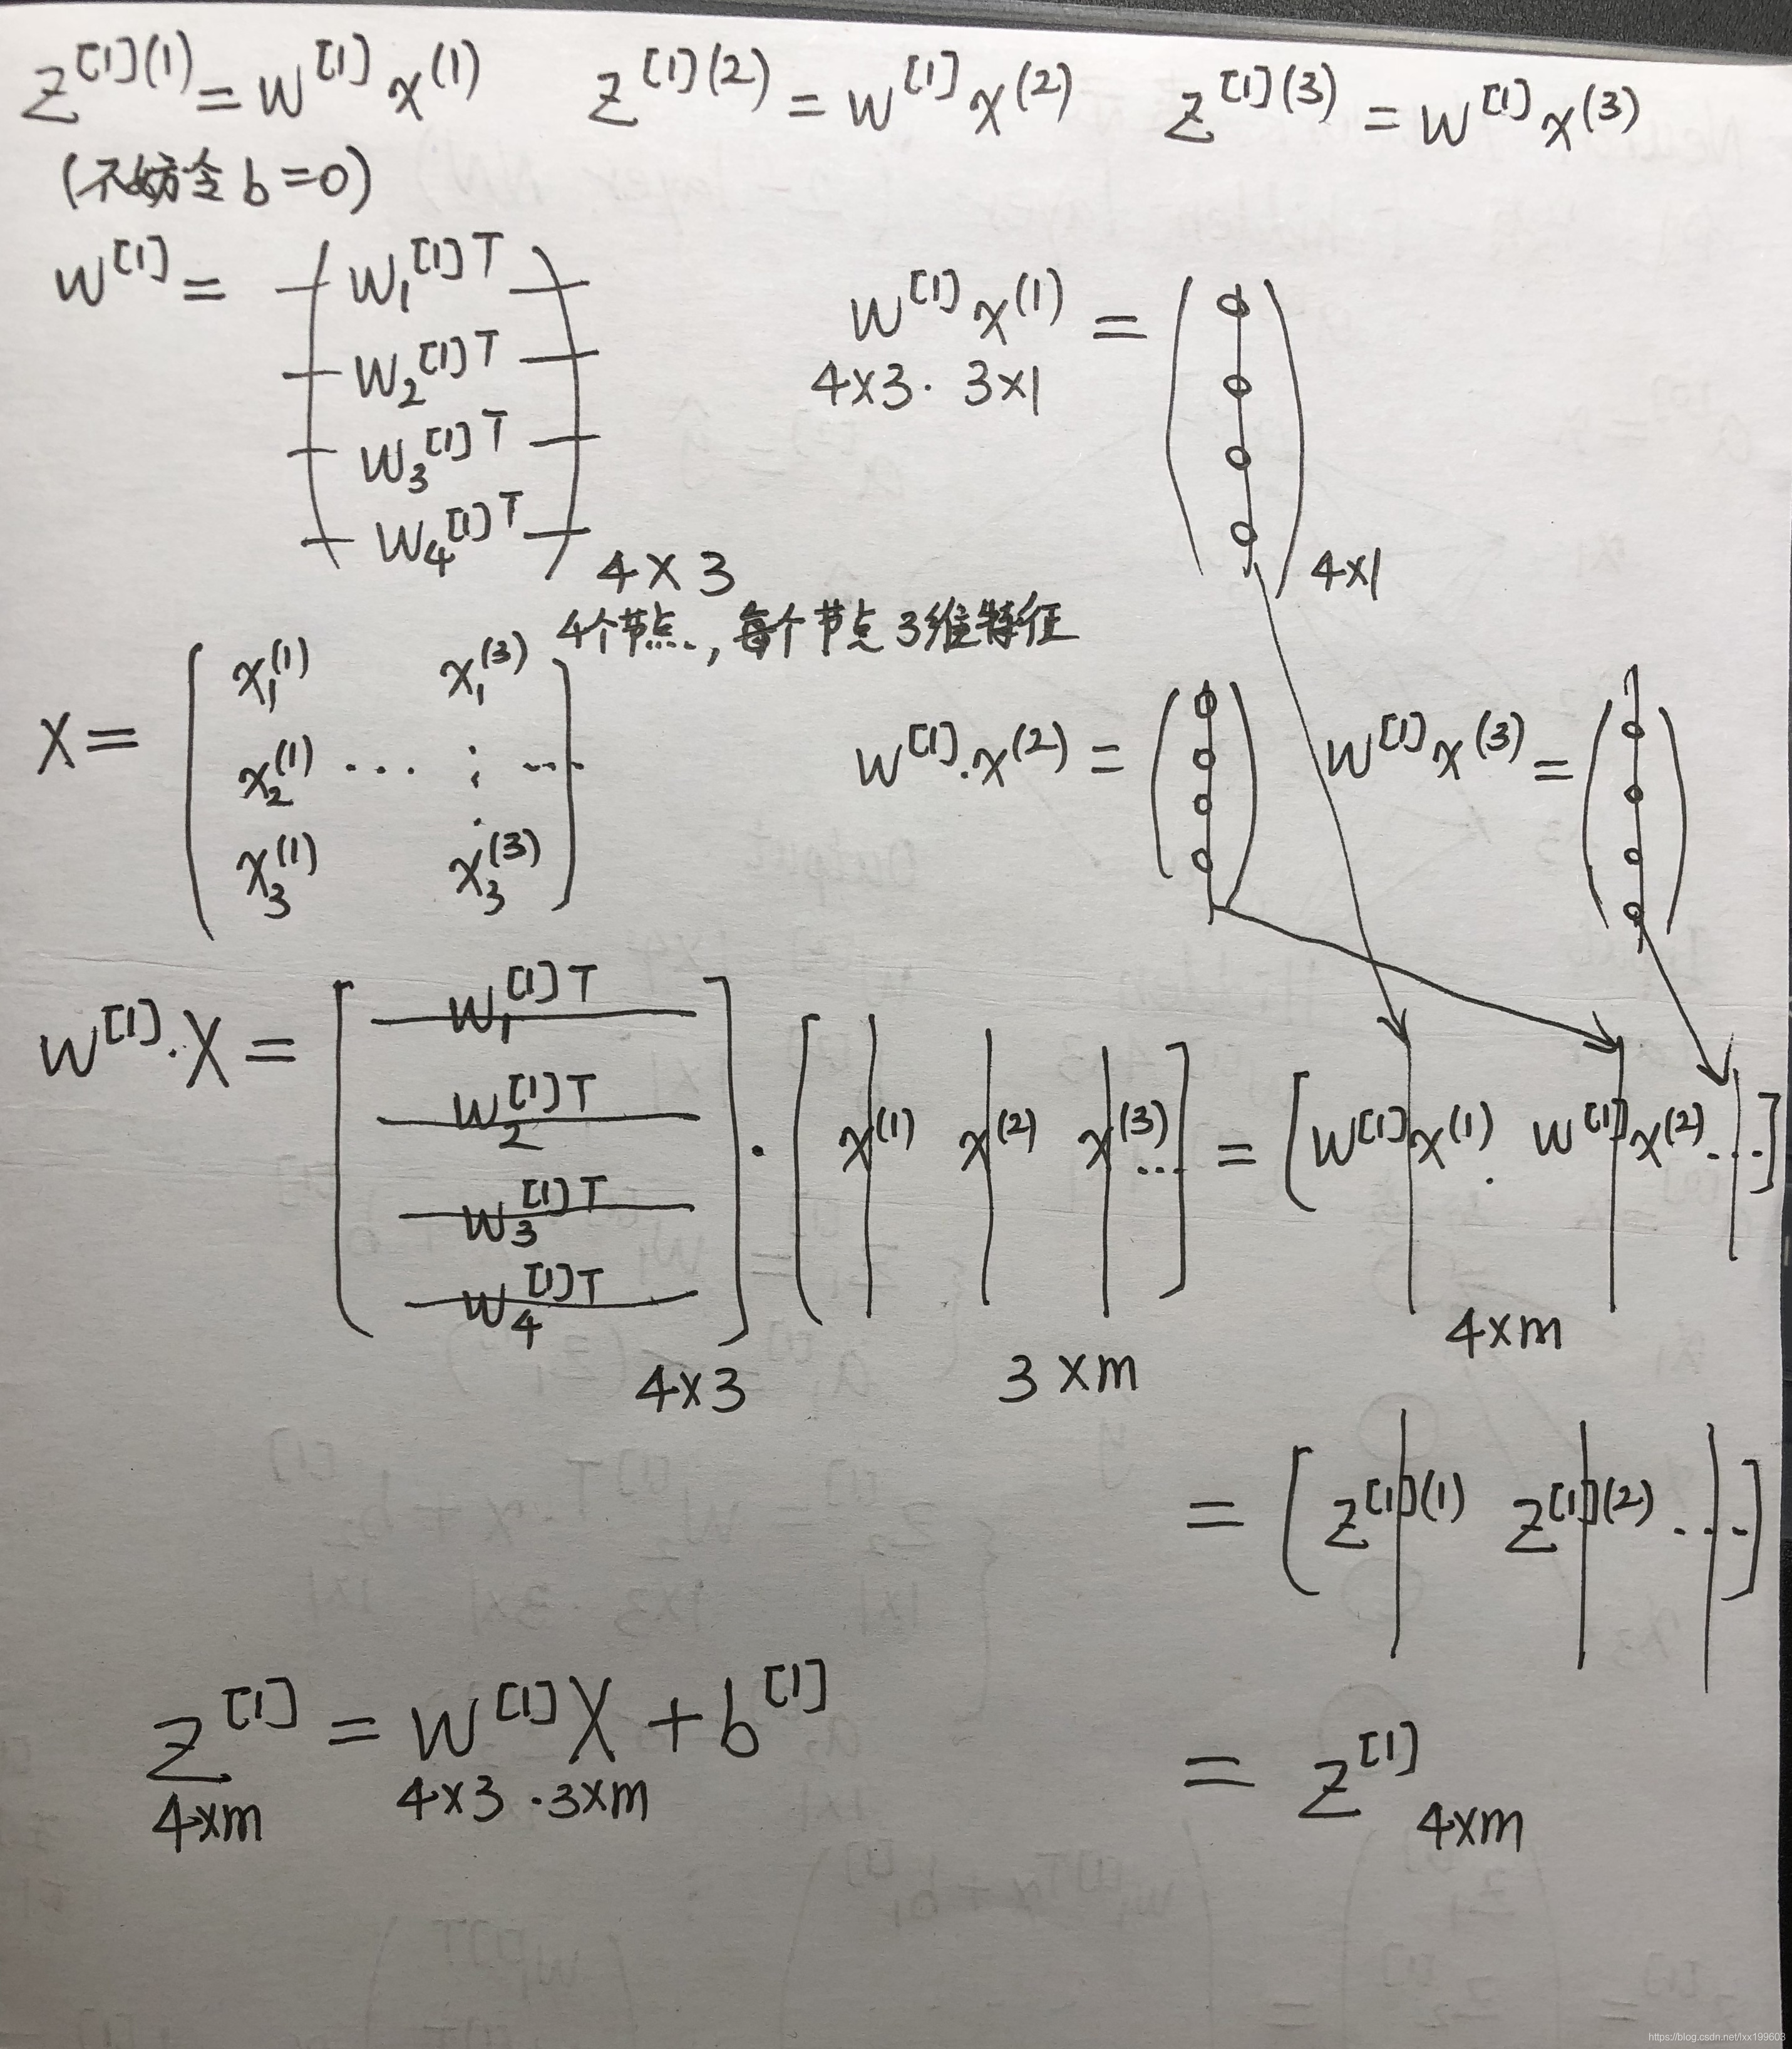 z^[1](1) = w^[1] x^(1) z^[1](2) = w^[1] x^(2) z^[1](3) = w^[1] x^(3)
(不妨令 b=0)
w^[1] =
w_1^[1]T
w_2^[1]T
w_3^[1]T
w_4^[1]T
4×3
4个节点, 每个节点3维特征
w^[1] x^(1) =
4×3 · 3×1
4×1
X =
x_1^(1) x_1^(3)
x_2^(1) ... : ...
x_3^(1) x_3^(3)
w^[1] · x^(2) =
w^[1] x^(3) =
w^[1] · X = [ w_1^[1]T
w_2^[1]T
w_3^[1]T
w_4^[1]T ] · [ x^(1) x^(2) x^(3) ... ] = [ w^[1] x^(1) . w^[1] x^(2) ... ]
4×3 3×m 4×m
= [ z^[1](1) z^[1](2) ... ]
z^[1] = w^[1] X + b^[1]
4×m 4×3 · 3×m
= z^[1]
4×m
https://blog.csdn.net/lxx199603